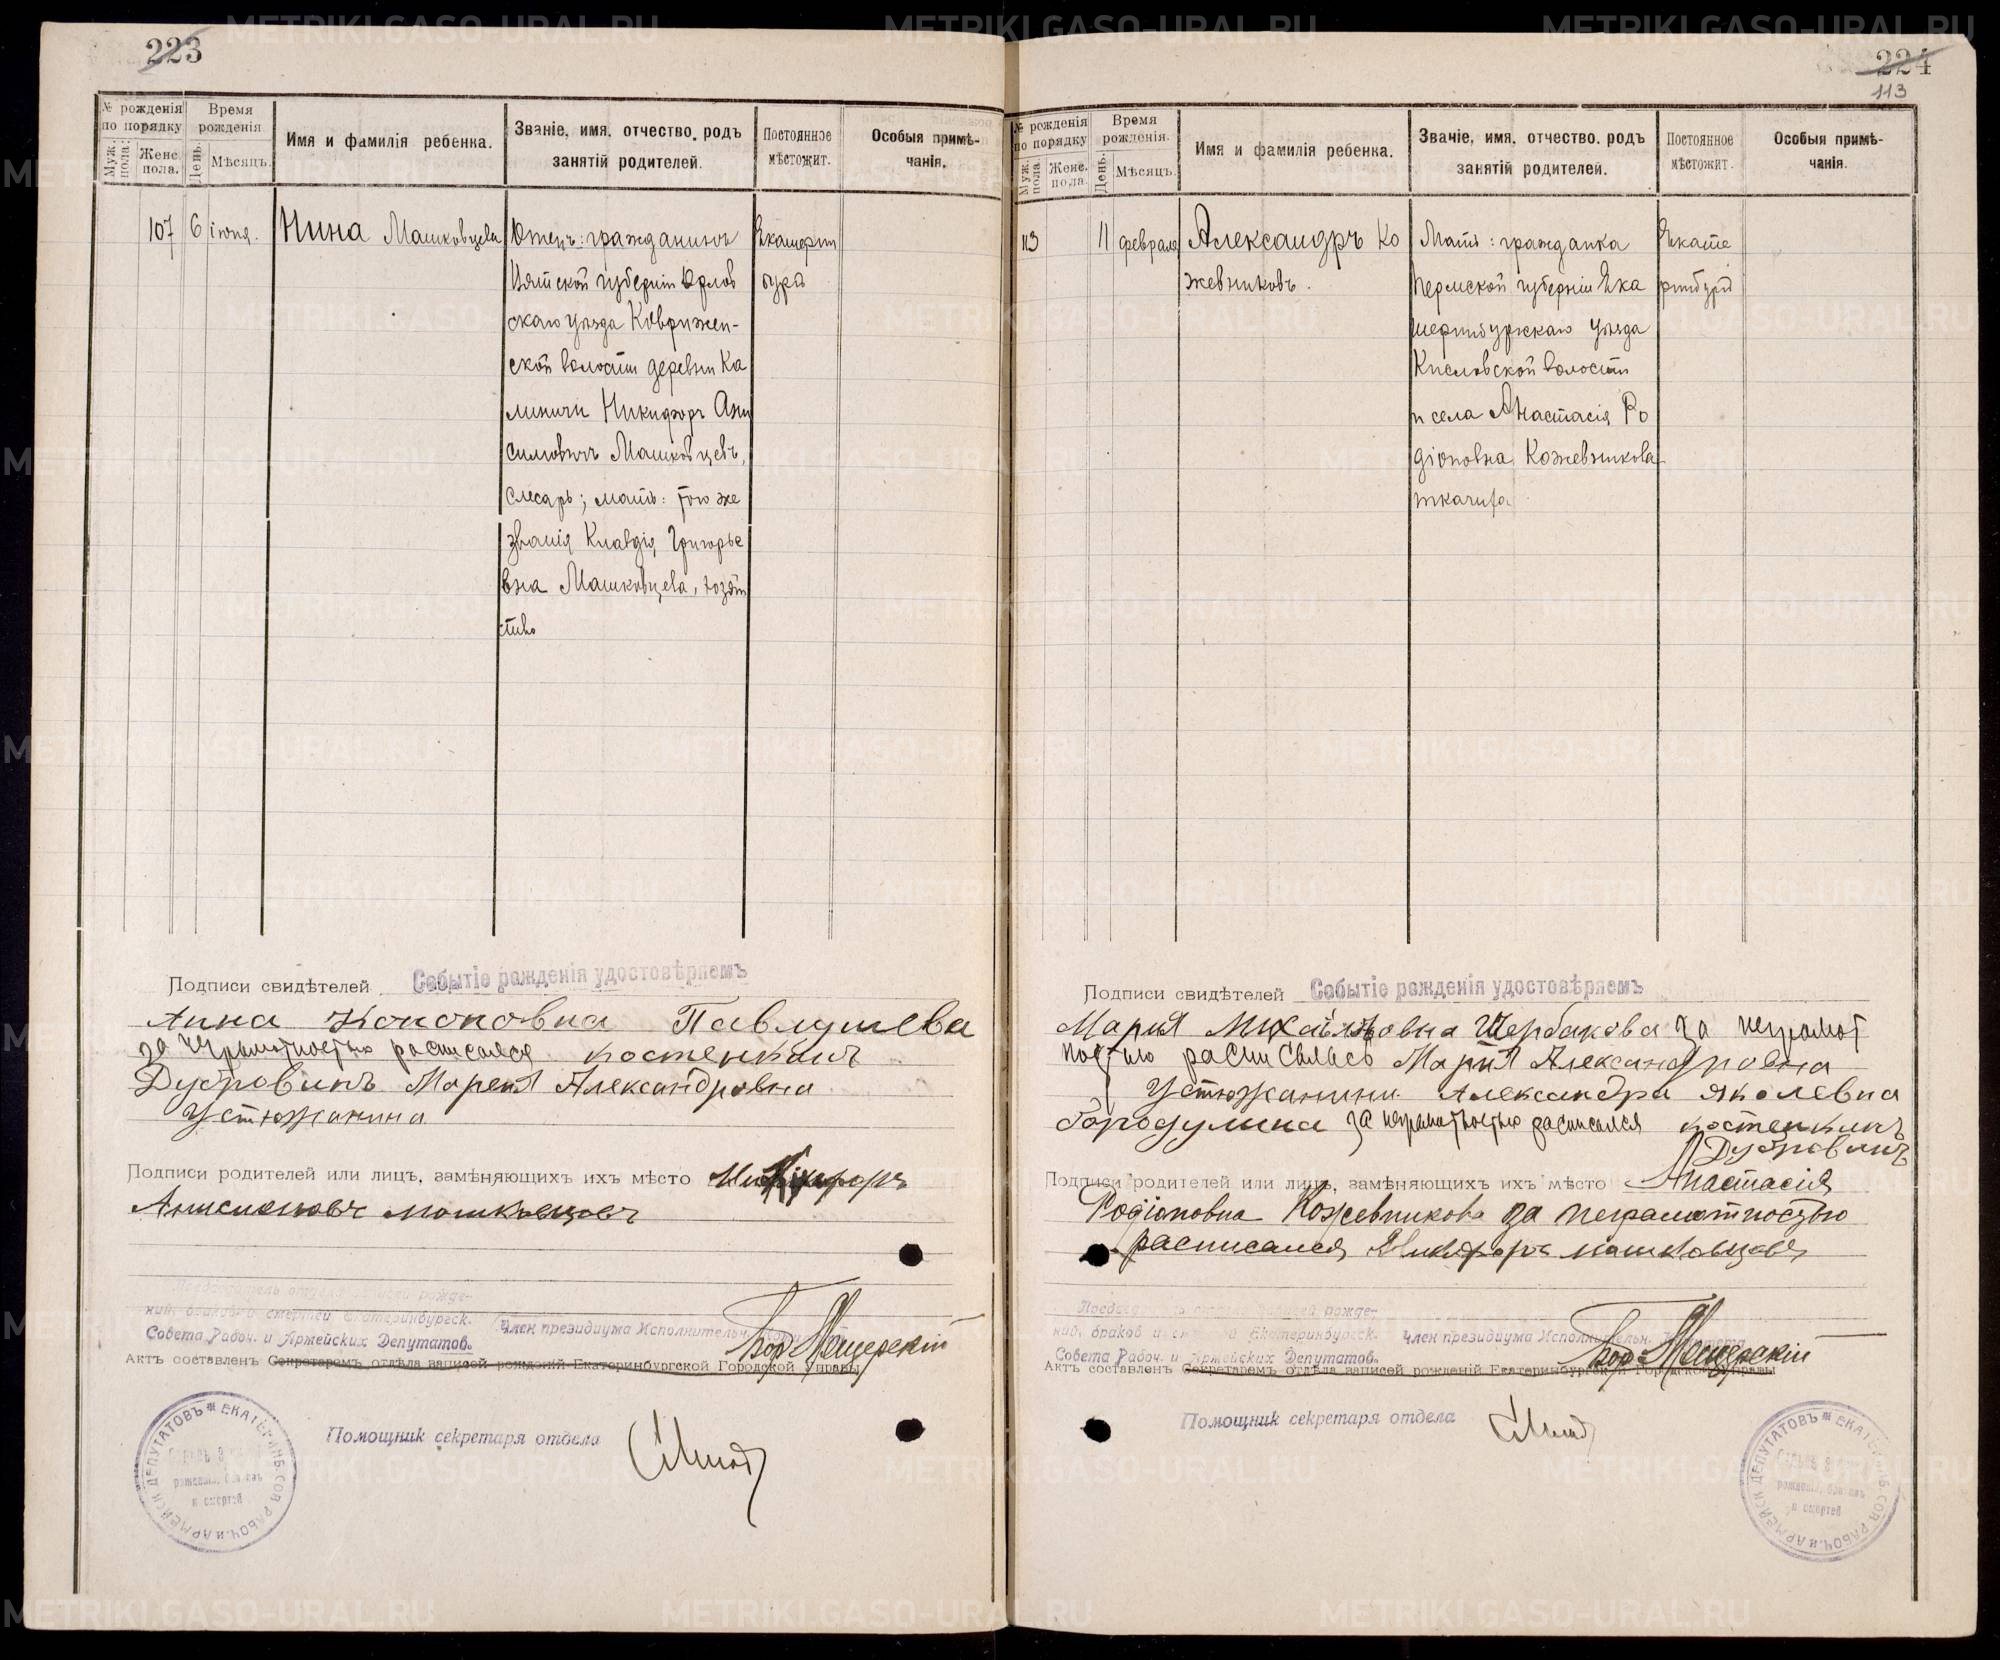 223
№ рожденія по порядку
Муж. пола.
Женс. пола.
Время рожденія
День.
Мѣсяцъ.
Имя и фамилія ребенка.
Званіе, имя, отчество, родъ
занятій родителей.
Постоянное
мѣстожит.
Особыя примѣ-
чанія.
107 6 іюня. Нина Машковцева
Отецъ: гражданинъ
Вятской губерніи Орлов
скаго уѣзда
ской волости деревни Ка
линичи Никифоръ Ани
симовичъ Машковцевъ,
слесарь; мать: того же
званія Клавдія Григорье
вна Машковцева, хозяй
ство
Екатерин
бургъ
Подписи свидѣтелей Событіе рожденія удостовѣряемъ
Анна Кононовна Павлушева
за неграмотностью расписался костенкинъ
Дубровинъ Мария Александровна
Устюжанина
Подписи родителей или лицъ, замѣняющихъ ихъ мѣсто Никифоръ
Анисимовъ машковцевъ
Председатель отдела записей рожде-
ний, браков и смертей Екатеринбургск.
Совета Рабоч. и Армейских Депутатов.
Член президиума Исполнительн. Комитета
Актъ составленъ Секретаремъ отдѣла записей рожденій Екатеринбургской Городской Управы
Помощник секретаря отдела
ЕКАТЕРИНБ. СОВ. РАБОЧ. И АРМЕЙСК ДЕПУТАТОВЪ
рожденій, браковъ
и смертей
224
113
№ рожденія по порядку
Муж. пола
Женс. пола.
Время рожденія.
День.
Мѣсяцъ.
Имя и фамилія ребенка.
Званіе, имя, отчество, родъ
занятій родителей.
Постоянное
мѣстожит.
Особыя примѣ-
чанія.
113 11 февраля Александръ Ко
жевниковъ.
Мать: гражданка
Пермской губерніи Ека
теринбургскаго уѣзда
Кисловской волости
и села Анастасія Ро
діоновна Кожевникова
ткачиха
Екате
ринбургъ
Подписи свидѣтелей Событіе рожденія удостовѣряемъ
Мария Михайловна Щербакова за неграмот
ностью расписалась Мария Александровна
Устюжанини Александра Яколевна
Городулина за неграмотностью расписался костенкинъ
Дубровинъ
Подписи родителей или лицъ, замѣняющихъ ихъ мѣсто Анастасія
Родіоновна Кожевникова за неграмотностью
расписался Никифоръ машковцевъ
Председатель отдела записей рожде-
ний, браков и смертей Екатеринбургск.
Совета Рабоч. и Армейских Депутатов.
Член президиума Исполнительн. Комитета
Актъ составленъ Секретаремъ отдѣла записей рожденій Екатеринбургской Городской Управы
Помощник секретаря отдела
ЕКАТЕРИНБ. СОВ. РАБОЧ. И АРМЕЙСК ДЕПУТАТОВЪ
рожденій, браковъ
и смертей
METRIKI.GASO-URAL.RU